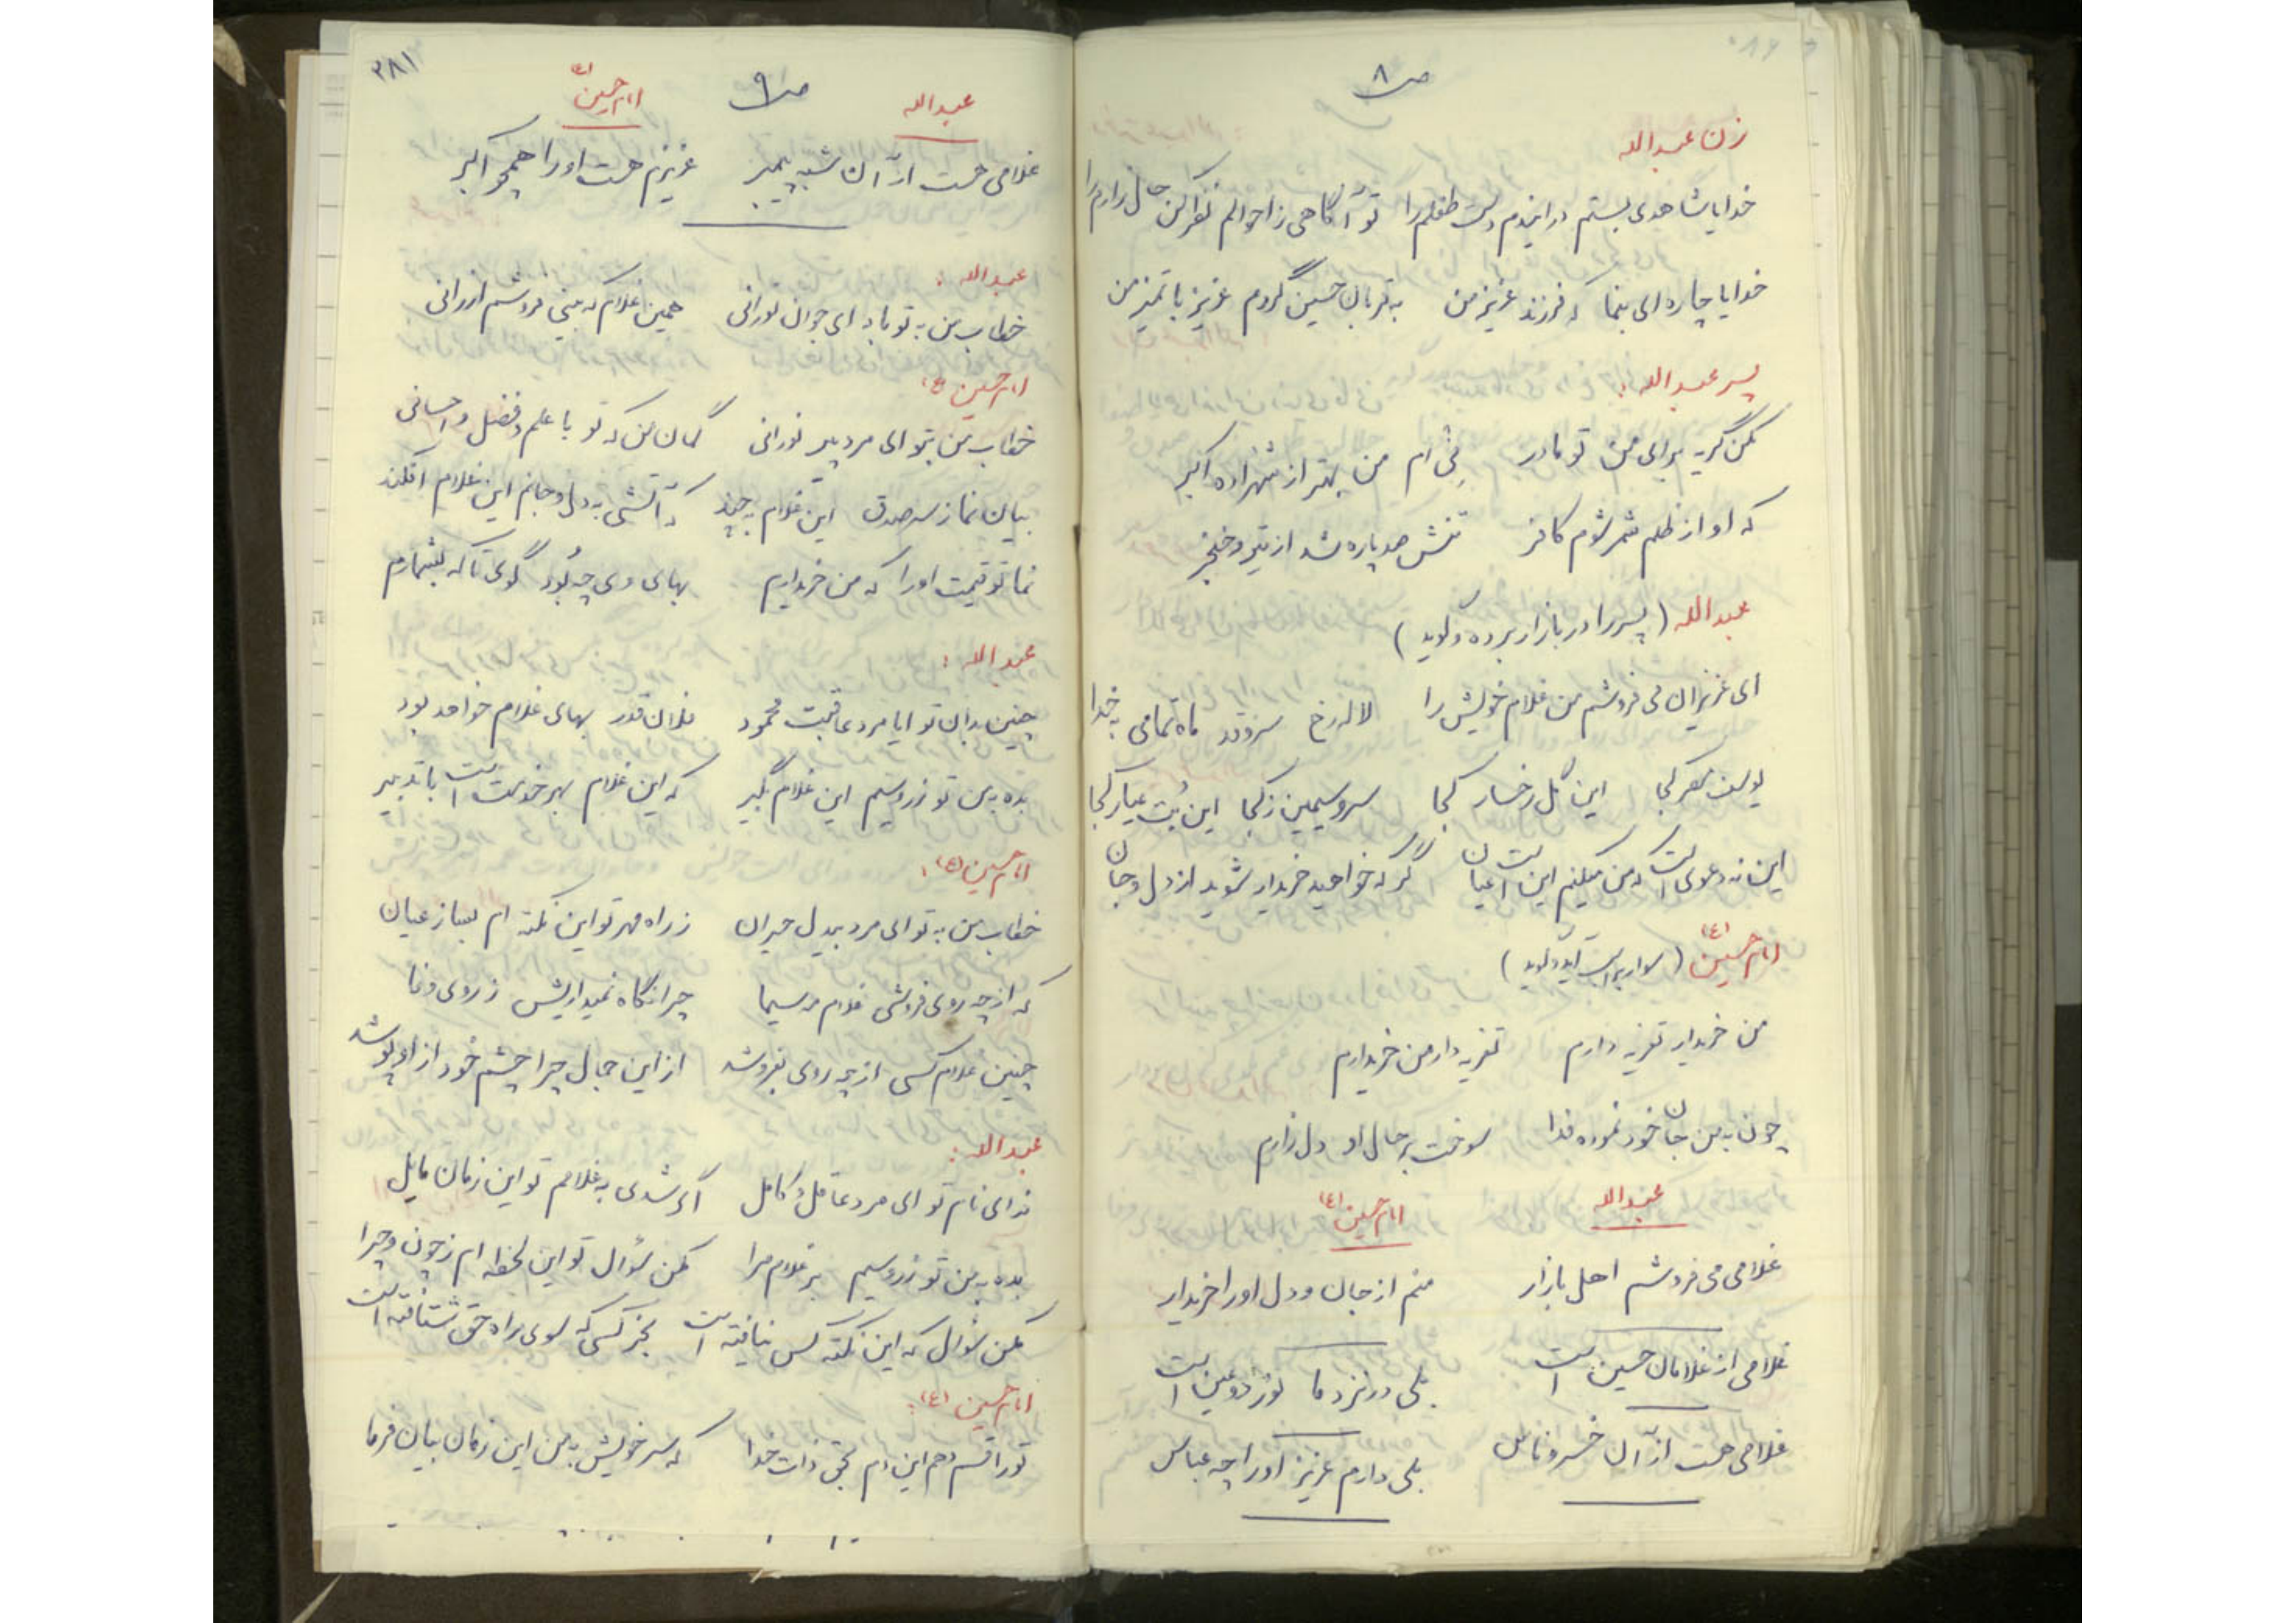 ص ۸
زن عبدالله
خدایا شاهدی بستم در ایندم دست طفلم را تو آگاهی ز احوالم نظر کن حال زارم را
خدایا چاره‌ای بنما که فرزند عزیز من به قربان حسین گردم عزیز با تمیز من
پسر عبدالله :
مکن گریه برای من تو مادر نِی ام من بهتر از شهزاده اکبر
که او از ظلم شمر شوم کافر تنش صد پاره شد از تیر و خنجر
عبدالله ( پسر را در بازار برده و گوید )
ای عزیزان می فروشم من غلام خویش را لاله رخ سرو قد ماه تمامی به خدا
یوسف مصر کجا این گل رخسار کجا سرو سیمین ز کجا این بُت عیار کجا
این نه دعوی است که من میکنم این است عیان گر که خواهید خریدار شوید از دل و جان
امام حسین (ع) ( سوار بر اسب آید و گوید )
من خریدار تعزیه دارم تعزیه دار من خریدارم
چون به من جان خود نموده فدا سوخت بر حال او دل زارم
عبدالله امام حسین (ع)
غلامی می فروشم اهل بازار منم از جان و دل او را خریدار
غلامی از غلامان حسین است بلی در نزد ما نور دو عین است
غلامی هست از آن خسرو ناس بلی دارم عزیز او را چه عباس
۳۸۱
ص ۹
عبدالله امام حسین (ع)
غلامی هست از آن شبه پیمبر عزیزم هست او را همچو اکبر
عبدالله :
خطاب من به تو باد ای جوان نورانی همین غلام که بینی فروشم ارزانی
امام حسین (ع)
خطاب من بتو ای مرد پیر نورانی گمان کنم که تو با علم و فضل و احسانی
بیان نما ز سر صدق این غلام به چند که آتشی به دل و جانم این غلام افکند
نما تو قیمت او را که من خریدارم بهای وی چه بُود گوی تا که بشمارم
عبدالله :
چنین بدان تو ایا مرد عاقبت محمود فلان قدر بهای غلام خواهد بود
بده به من تو زر و سیم این غلام بگیر که این غلام بهر خدمت است با تدبیر
امام حسین (ع) :
خطاب من به تو ای مرد بیدل حیران ز راه مهر تو این نکته ام بساز عیان
که از چه روی فروشی غلام مه سیما چرا نگاه نمیداریش ز روی وفا
چنین غلام کسی از چه روی بفروشد از این جمال چرا چشم خود از او پوشد
عبدالله :
فدای نام تو ای مرد عاقل و کامل اگر شدی به غلامم تو این زمان مایل
بده به من تو زر و سیم بر غلام مرا مکن سؤال تو این لحظه ام ز چون و چرا
مکن سؤال که این نکته کس نیافته است بجز کسی که سوی راه حق شتافته است
امام حسین (ع) :
تو را قسم دهم این دم بحق ذات خدا که سر خویش به من این زمان بیان فرما